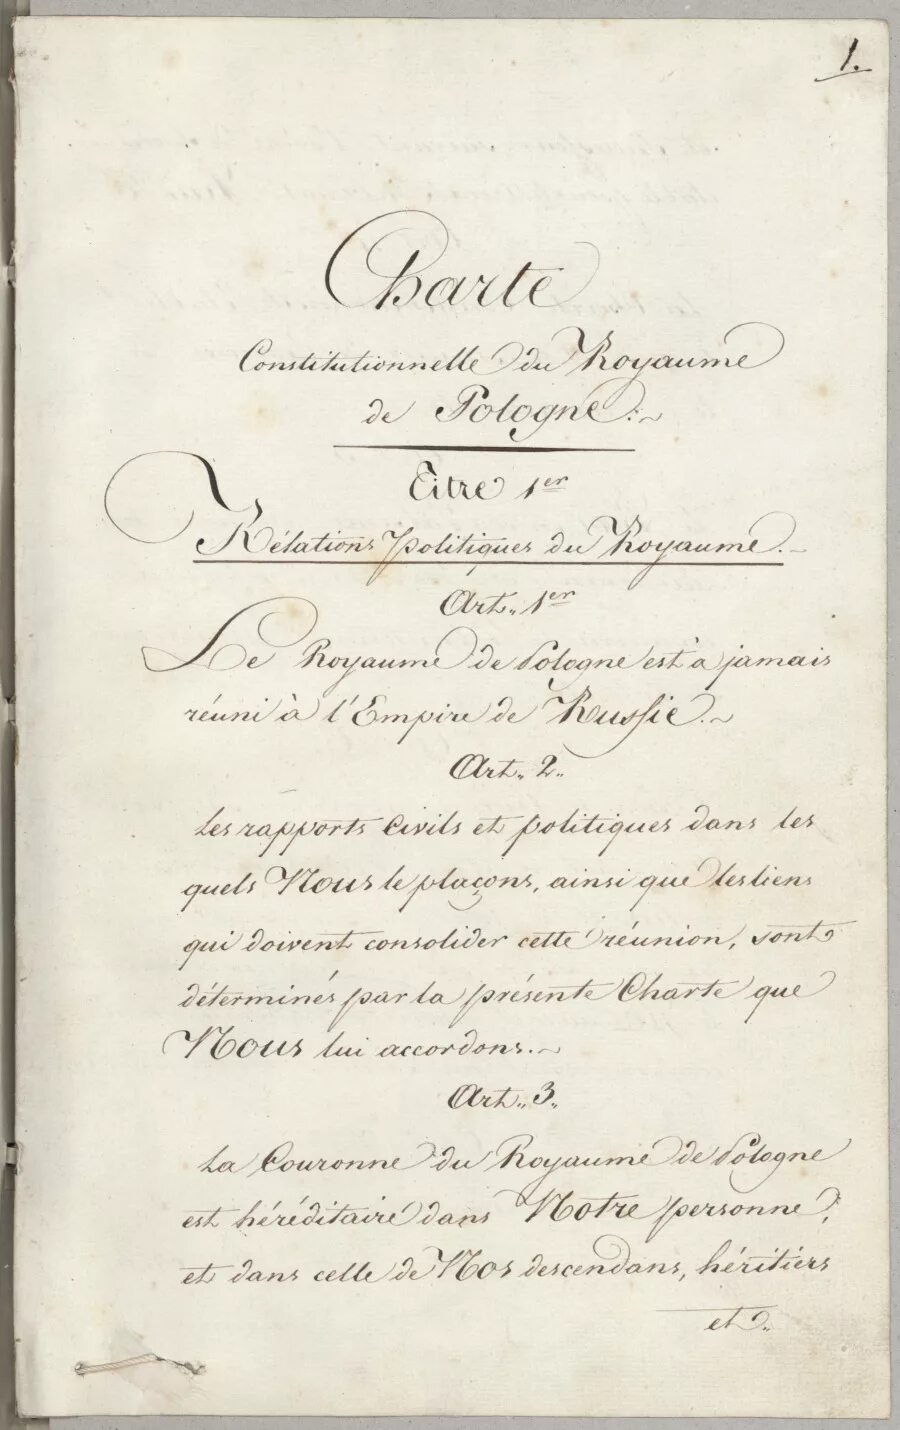 1.
Charte
Constitutionnelle du Royaume
de Pologne.~
Titre 1er
Rélations politiques du Royaume.~
Art. 1er
Le Royaume de Pologne est à jamais
réuni à l'Empire de Russie.~
Art. 2.
Les rapports civils et politiques dans les
quels Nous le plaçons, ainsi que les liens
qui doivent consolider cette réunion, sont
déterminés par la présente Charte que
Nous lui accordons.~
Art. 3.
La Couronne du Royaume de Pologne
est héréditaire dans Notre personne,
et dans celle de Nos descendans, héritiers
et